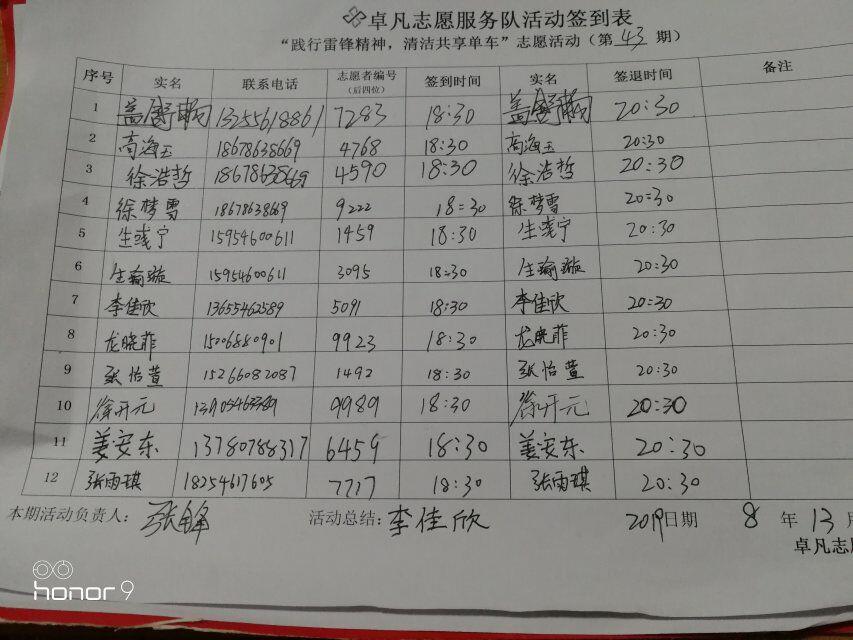 卓凡志愿服务队活动签到表
“践行雷锋精神，清洁共享单车”志愿活动（第 43 期）
序号 实名 联系电话 志愿者编号（后四位） 签到时间 实名 签退时间 备注
1 13255618861 7283 18:30 20:30
2 高海玉 18678638669 4768 18:30 高海玉 20:30
3 徐浩哲 18678638669 4590 18:30 徐浩哲 20:30
4 徐梦雪 18678638669 9222 18:30 徐梦雪 20:30
5 生彧宁 15954600611 1459 18:30 生彧宁 20:30
6 生瑜璇 15954600611 3095 18:30 生瑜璇 20:30
7 李佳欣 13655462589 5091 18:30 李佳欣 20:30
8 龙晓菲 15006880901 9923 18:30 龙晓菲 20:30
9 张怡萱 15266082087 1492 18:30 张怡萱 20:30
10 徐开元 9989 18:30 徐开元 20:30
11 姜安东 13780788317 6459 18:30 姜安东 20:30
12 张雨琪 18254617605 7717 18:30 张雨琪 20:30
本期活动负责人：张锋 活动总结：李佳欣 2019日期 8 年 13 月
卓凡志愿
honor 9